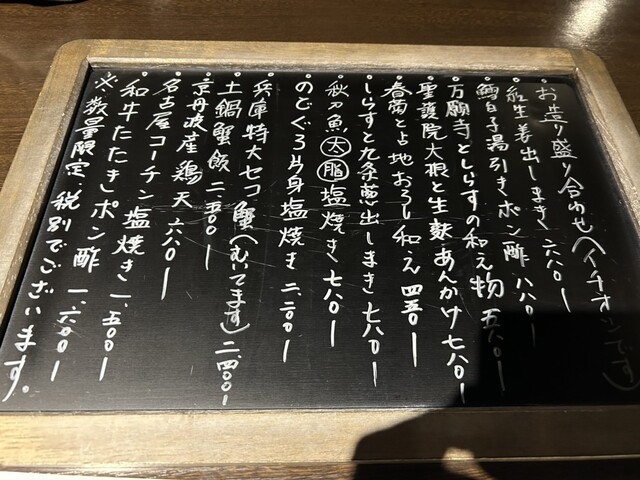 ・お造り盛り合わせ(イチオシです)
・紅生姜出しまき 六八〇ー
・鱈白子湯引きポン酢 八八〇ー
・万願寺としらすの和え物 五八〇ー
・聖護院大根と生麩あんかけ 七八〇ー
・春菊と占地おろし和え 四五〇ー
・しらすと九条葱出しまき 七八〇ー
・秋刀魚大脂塩焼き 七八〇ー
・のどぐろ片身塩焼き 二、二〇〇ー
・兵庫特大セコ蟹(むいてます) 二、四〇〇ー
・土鍋蟹飯 二、五〇〇ー
・京丹波産鶏天 六八〇ー
・名古屋コーチン塩焼き 一、五〇〇ー
・和牛たたきポン酢 一、六〇〇ー
※数量限定、税別でございます。